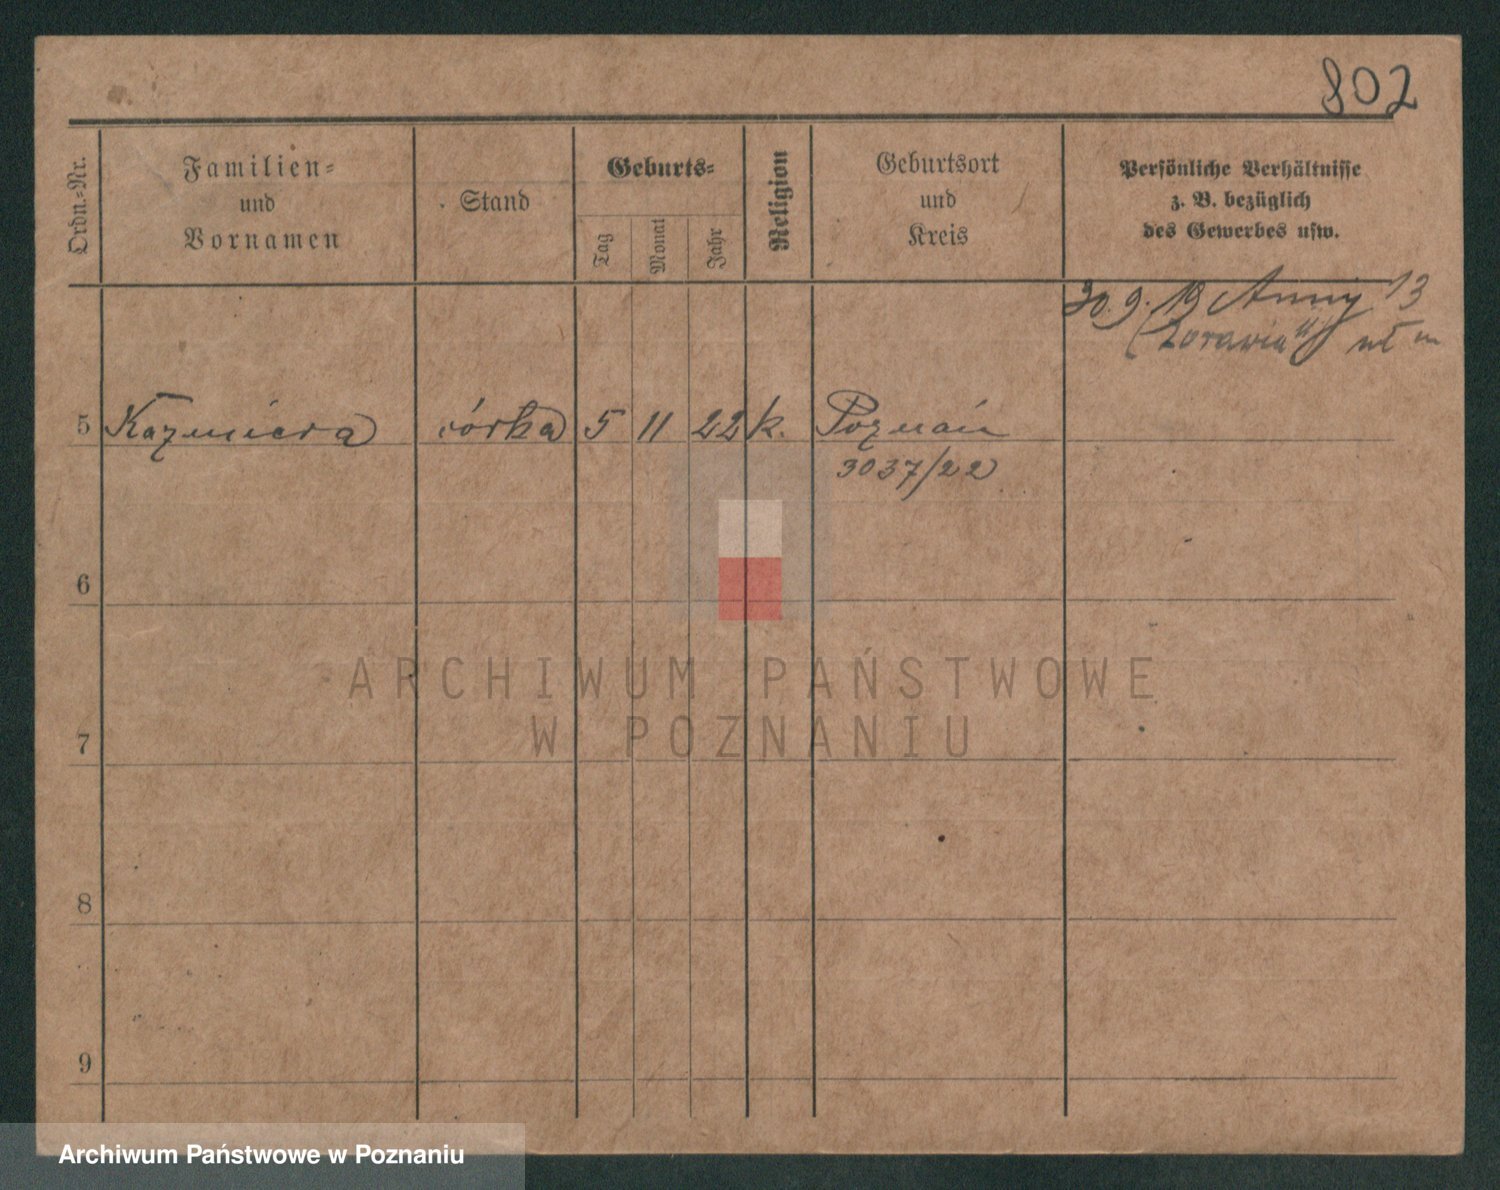 802
Ordn.-Nr.
Familien-
und
Vornamen
Stand
Geburts-
Tag
Monat
Jahr
Religion
Geburtsort
und
Kreis
Persönliche Verhältnisse
z. B. bezüglich
des Gewerbes usw.
30.9.19 Anny 13
5 Kazmiera córka 5 11 22 k. Poznań
3037/22
6
ARCHIWUM PAŃSTWOWE
W POZNANIU
7
8
9
Archiwum Państwowe w Poznaniu